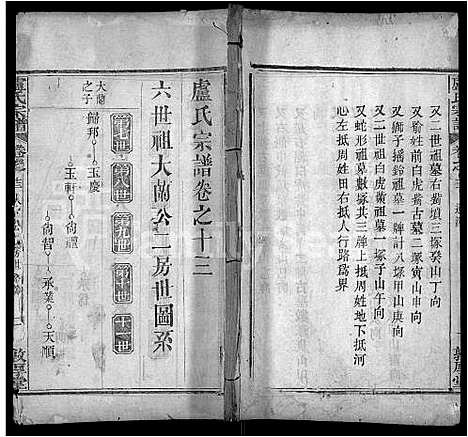 盧氏宗譜
又二世祖墓右觜墳三塚癸山丁向
又瑜姓前白虎觜古墓一塚艮山坤向
又獅子搖鈴祖墓一牌計八塚甲山庚向
又周姓祖屋前白虎觜祖墓一塚子山午向
又蛇形祖墓共三牌上抵周姓地下抵河
心左抵周姓田右抵人行路爲界
敦厚堂
盧氏宗譜卷之十三
六世祖大蘭公二房世圖系
第七世
第八世
第九世
第十世
十一世
大蘭之子
歸邦
玉慶
玉軒
尙禮
尙智
承業
天順
盧氏宗譜
敦厚堂